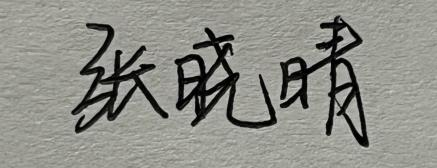 张晓晴